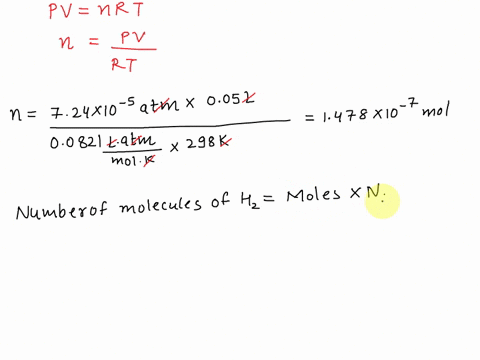 PV = nRT
n = PV / RT
n = 7.24×10⁻⁵ atm × 0.05L / 0.0821 L.atm / mol.K × 298K = 1.478×10⁻⁷ mol
Number of molecules of H₂ = Moles × N